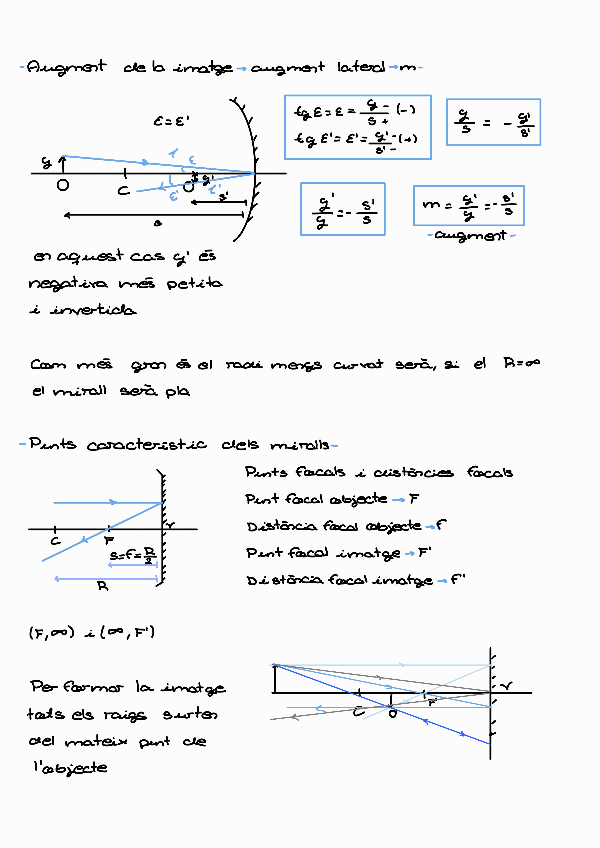 -Augment de la imatge → augment lateral → m-
ε = ε'
y
r
ε
O
C
O'
y'
ε'
r'
s'
s
tg ε = ε = y - / s + (-)
tg ε' = ε' = y' - / s' - (+)
y / s = - y' / s'
y' / y = - s' / s
m = y' / y = - s' / s
-augment-
en aquest cas y' és
negativa més petita
i invertida
Com més gran és el radi menys curvat serà, si el R=∞
el mirall serà pla
-Punts característic dels miralls-
C
F
V
s=f=R/2
R
Punts focals i distàncies focals
Punt focal objecte → F
Distància focal objecte → f
Punt focal imatge → F'
Distància focal imatge → f'
(F,∞) i (∞,F')
Per formar la imatge
tots els raigs surten
del mateix punt de
l'objecte
C
O
F'
V